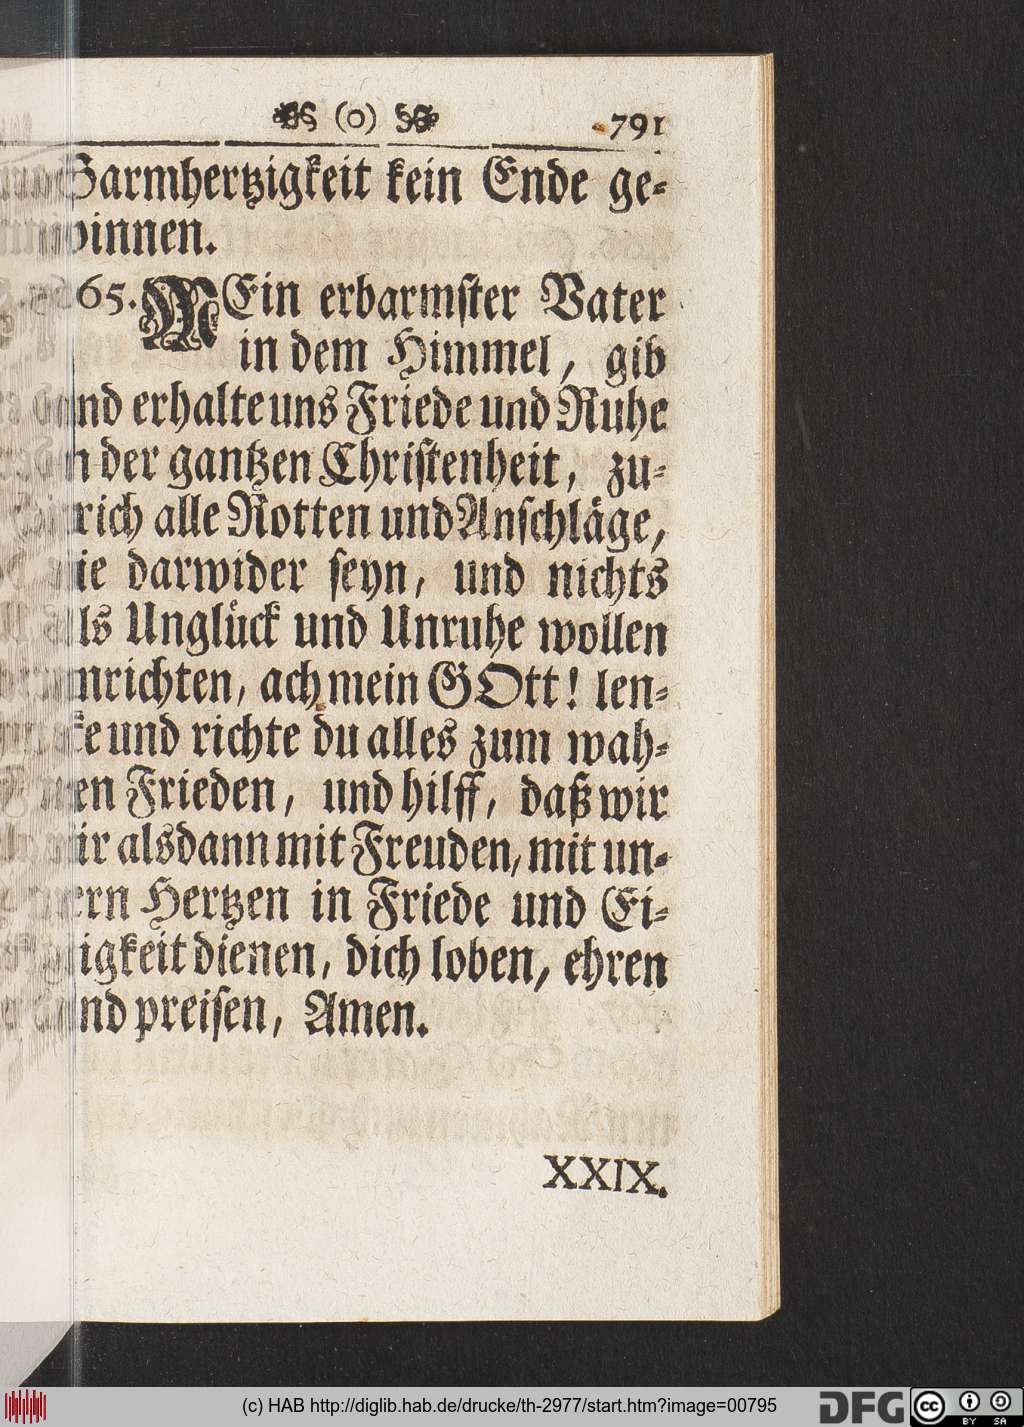 (o) 791
Barmhertzigkeit kein Ende ge-
winnen.
65. MEin erbarmster Vater
in dem Himmel, gib
und erhalte uns Friede und Ruhe
in der gantzen Christenheit, zu-
rich alle Rotten und Anschläge,
die darwider seyn, und nichts
als Unglück und Unruhe wollen
anrichten, ach mein GOtt! len-
ke und richte du alles zum wah-
ren Frieden, und hilff, daß wir
dir alsdann mit Freuden, mit un-
sern Hertzen in Friede und Ei-
nigkeit dienen, dich loben, ehren
und preisen, Amen.
XXIX.
(c) HAB http://diglib.hab.de/drucke/th-2977/start.htm?image=00795
DFG
cc BY SA